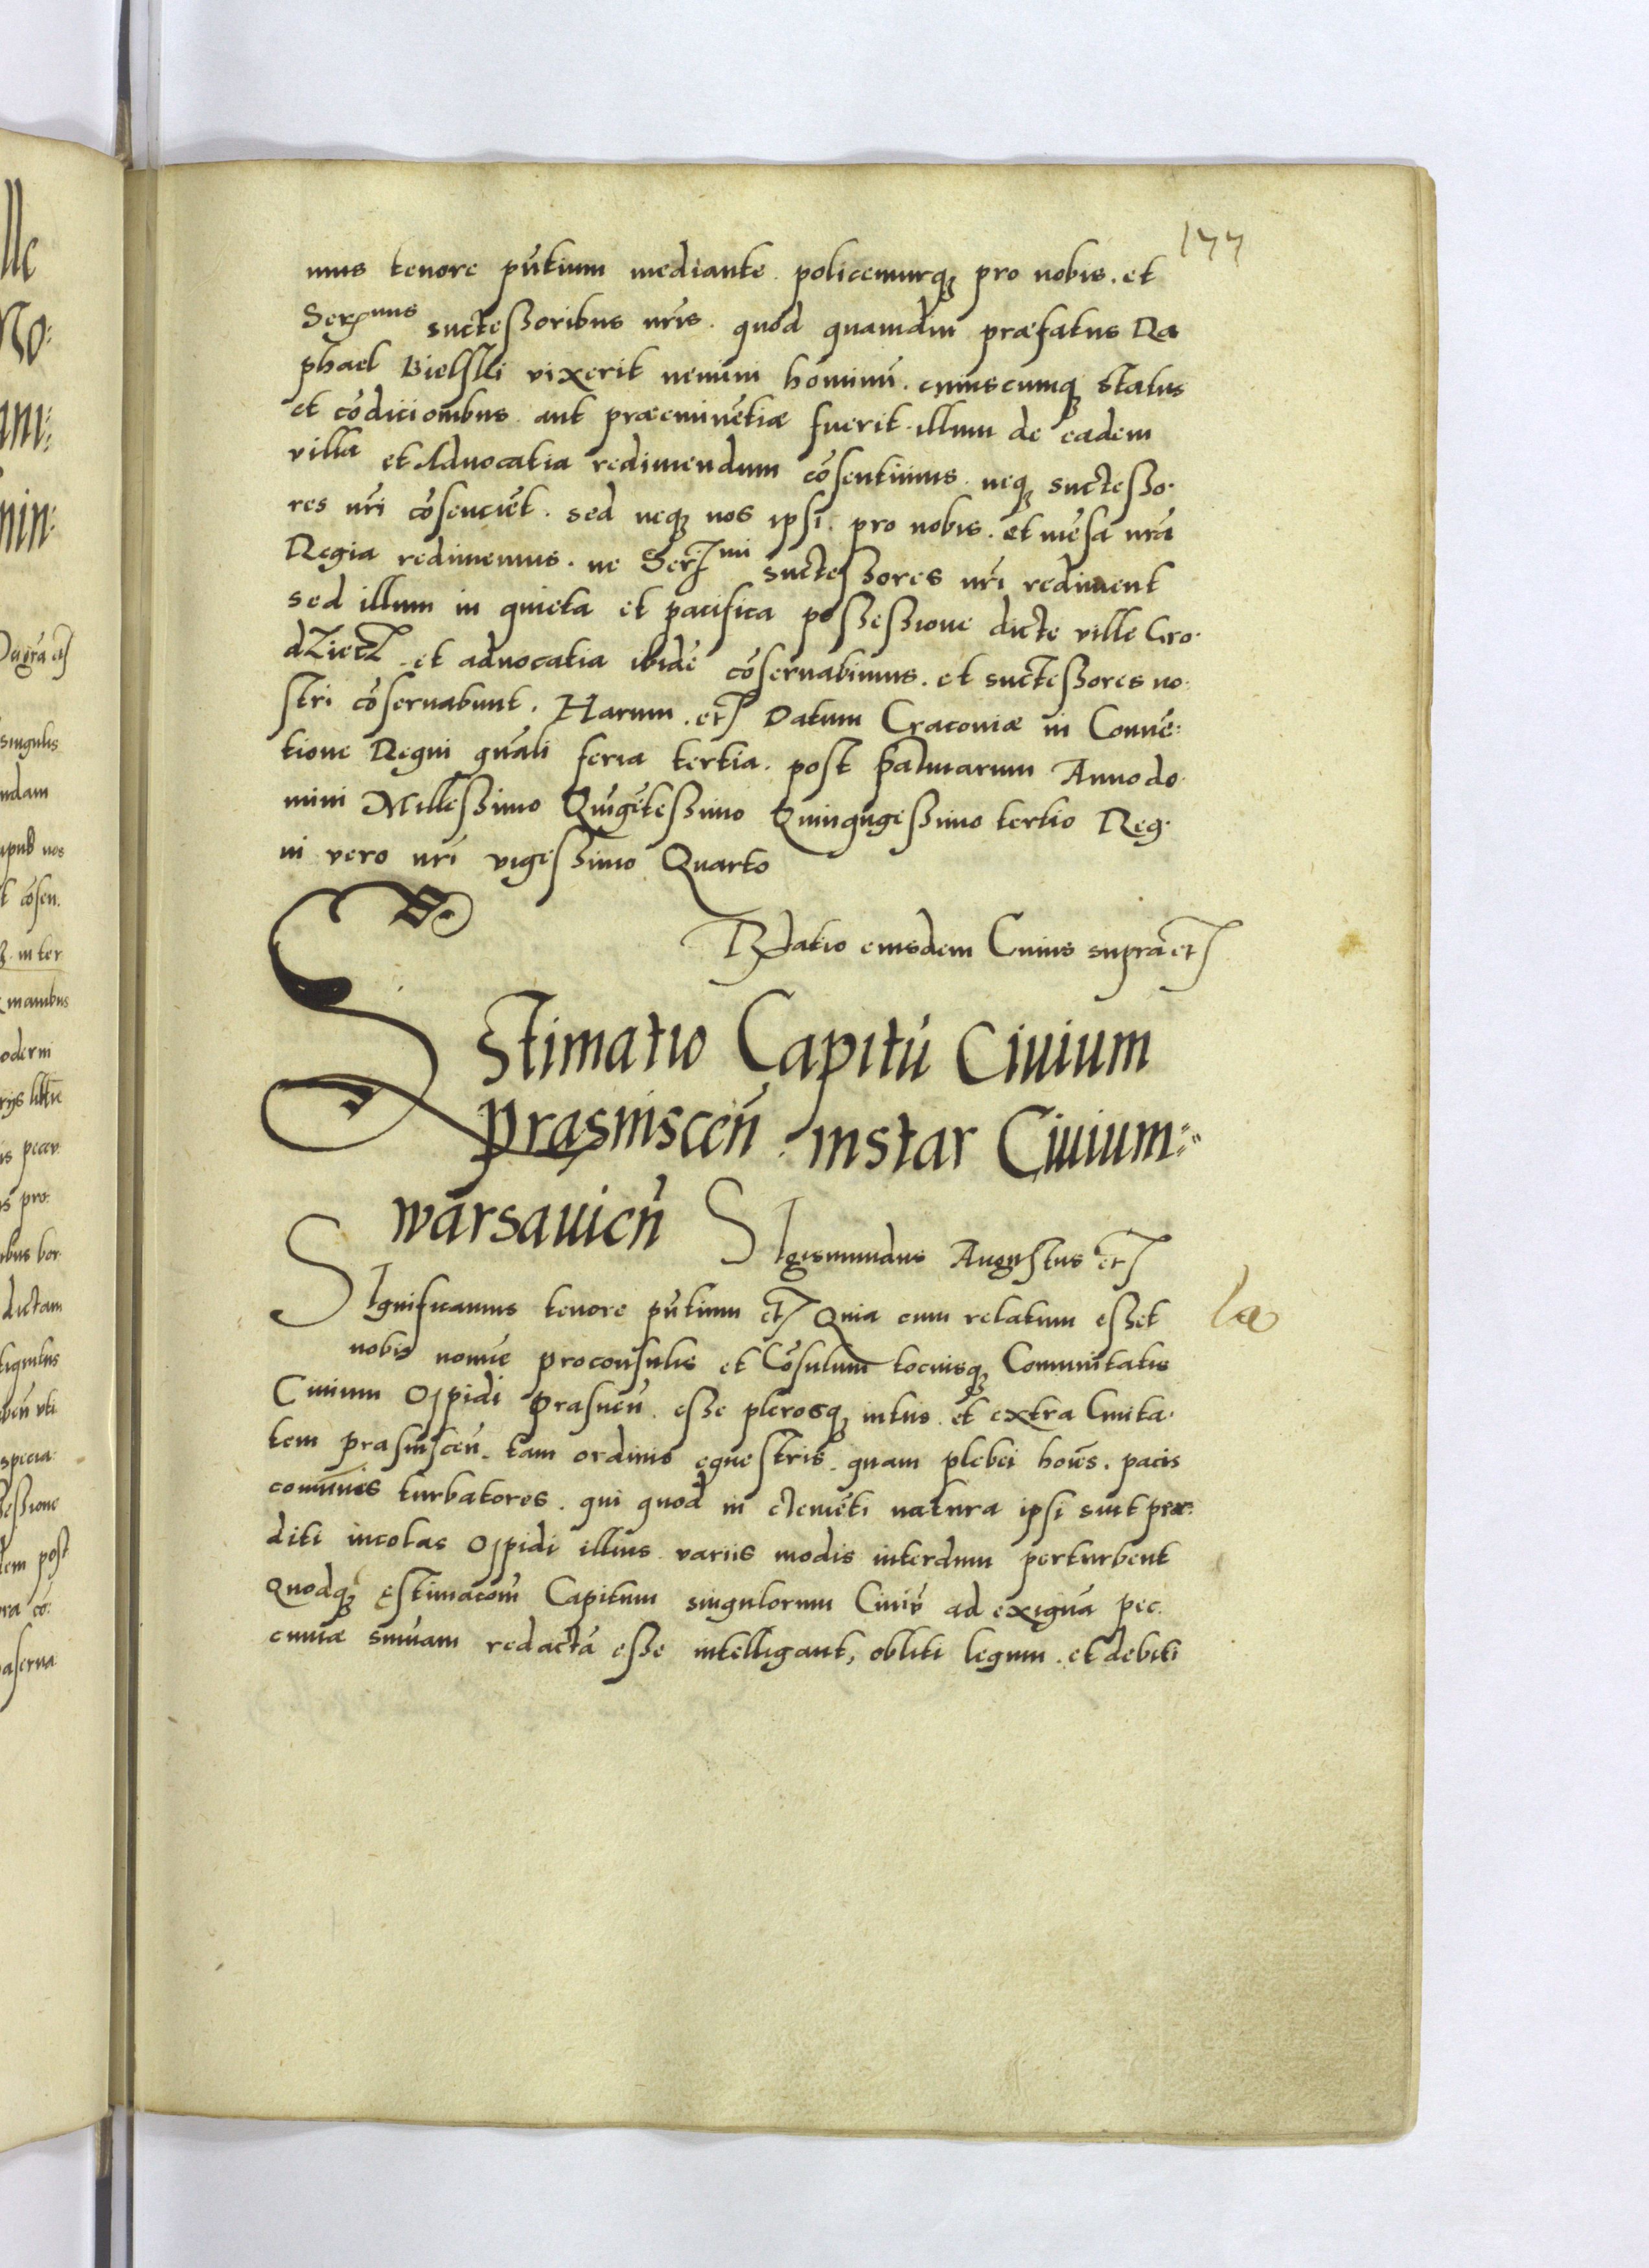 177
mus tenore pñtium mediante policemurq3 pro nobis. et
Serᵐⁱˢ successoribus nr̃is. quod quamdiu præfatus Ra
phael Bielsski vixerit nemini hominū. cuiuscumq3 status
et cōdicionibus aut præeminētiæ fuerit illum de eadem
villa et Aduocatia redimendum cōsentimus. neq3 successo.
res nr̃i cōsencīēt. sed neq3 nos ipsi. pro nobis. et mēsa nr̃a
Regia redimemus. ne Serᵐⁱ successores nr̃i rediment
sed illum in quieta et pacifica possessione dicte ville Gro.
dziecz et aduocatia ibidē cōseruabimus. et successores no.
stri cōseruabunt. Harum. etc Datum Cracoviæ in Conuē:
tione Regni gñali feria tertia. post palmarum Anno do.
mini Millessimo Qūigētessimo Quinqūgessimo tertio Reg.
ni vero nr̃i vigessimo Quarto
Relatio eiusdem Cuius supra etc
Estimatio Capitū Ciuium
prasniscen̄. instar Ciuium
warsauicn̄ SIgismundus Augustus etc
SIgnificamus tenore pñtium etc Quia cum relatum esset
la
nobis nomīe proconsulis et Cōsulum tociusq3 Comunitatis
Ciuium Oppidi Prasnen̄. esse plerosq3 intus. et extra Ciuita.
tem prasniscen̄. tam ordinis equestris. quam plebei hoīes. pacis
comunis turbatores. qui quod in clemēti natura ipsi sint præ:
diti incolas Oppidi illius variis modis interdum perturbent
Quodq3 Estimacoīm Capitum singulorum Ciuiū ad exiguā pec.
cuniæ sum̄am redactā esse intelligant, obliti legum. et debiti